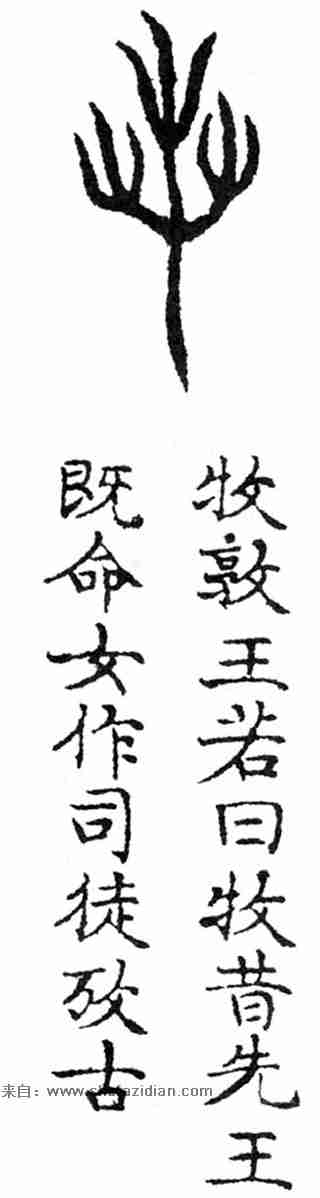 牧敦王若曰牧昔先王
既命女作司徒攷古
来自：www.shufazidian.com